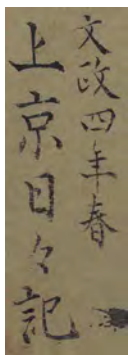 文政四年春
上京日々記